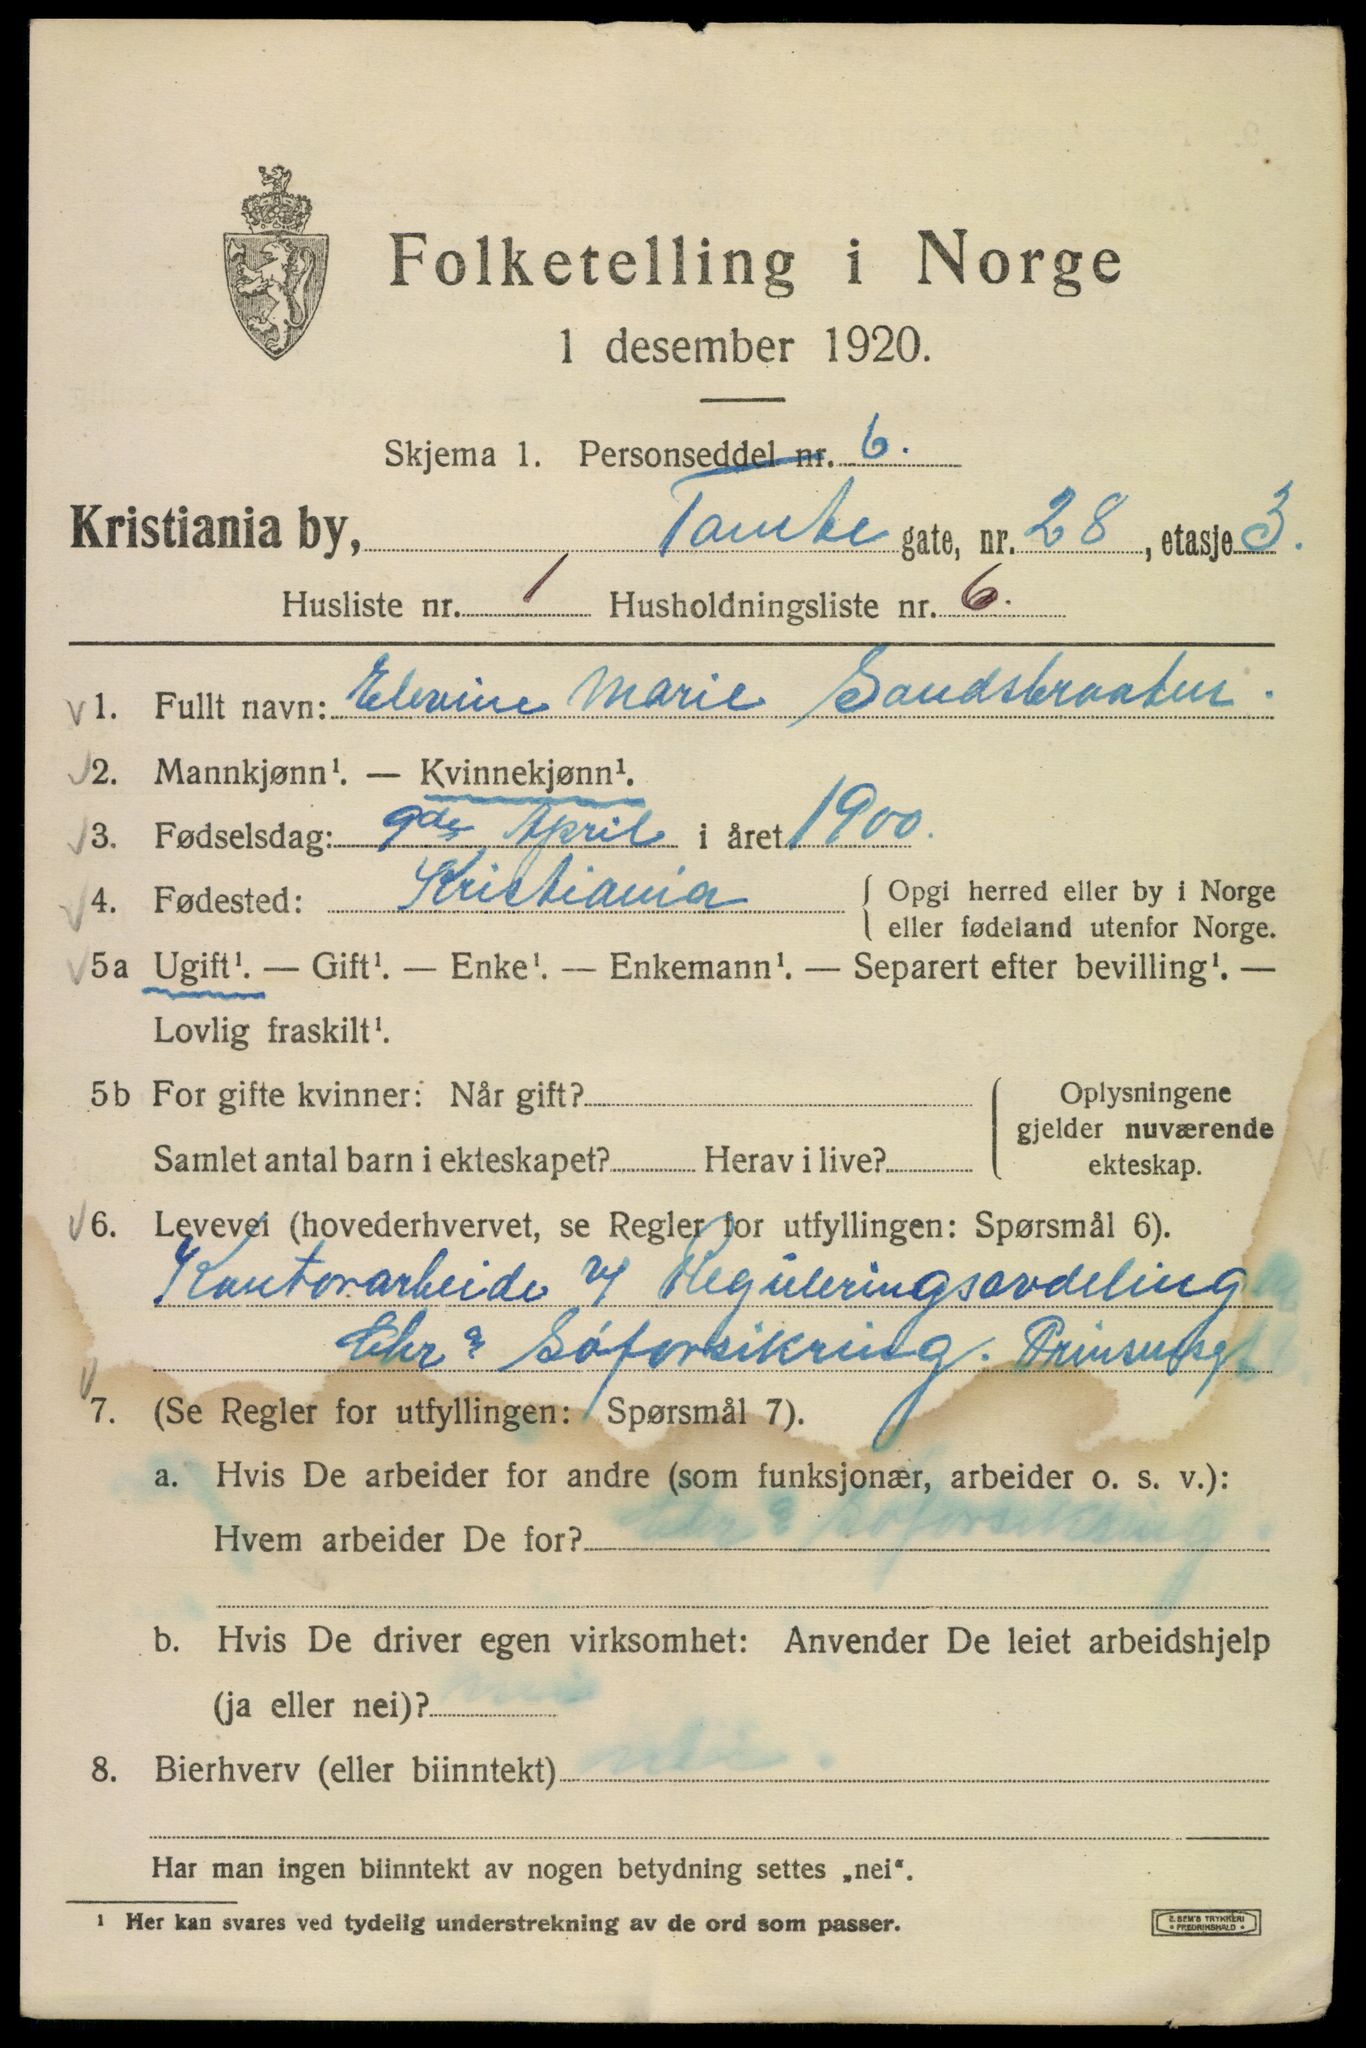 Folketelling i Norge
1 desember 1920.
Skjema 1. Personseddel nr. 6.
Kristiania by, Toyen gate, nr. 28, etasje 3.
Husliste nr. 1 Husholdningsliste nr. 6.
1. Fullt navn: Elevine Marie Sandsbraaten.
2. Mannkjønn¹. — Kvinnekjønn¹.
3. Fødselsdag: 9de April i året 1900.
4. Fødested: Kristiania { Opgi herred eller by i Norge
eller fødeland utenfor Norge.
5a Ugift¹. — Gift¹. — Enke¹. — Enkemann¹. — Separert efter bevilling¹. —
Lovlig fraskilt¹.
5b For gifte kvinner: Når gift? { Oplysningene
gjelder nuværende
Samlet antal barn i ekteskapet? Herav i live? ekteskap.
6. Levevei (hovederhvervet, se Regler for utfyllingen: Spørsmål 6).
Kontorarbeide v/ Reguleringsavdeling
Chr.a Søforsikring. Prinsensgt
7. (Se Regler for utfyllingen: Spørsmål 7).
a. Hvis De arbeider for andre (som funksjonær, arbeider o. s. v.):
Hvem arbeider De for? Chr.a Søforsikring.
b. Hvis De driver egen virksomhet: Anvender De leiet arbeidshjelp
(ja eller nei)? nei
8. Bierhverv (eller biinntekt) nei.
Har man ingen biinntekt av nogen betydning settes „nei“.
¹ Her kan svares ved tydelig understrekning av de ord som passer.
E. SEM'S TRYKKERI
FREDRIKSHALD